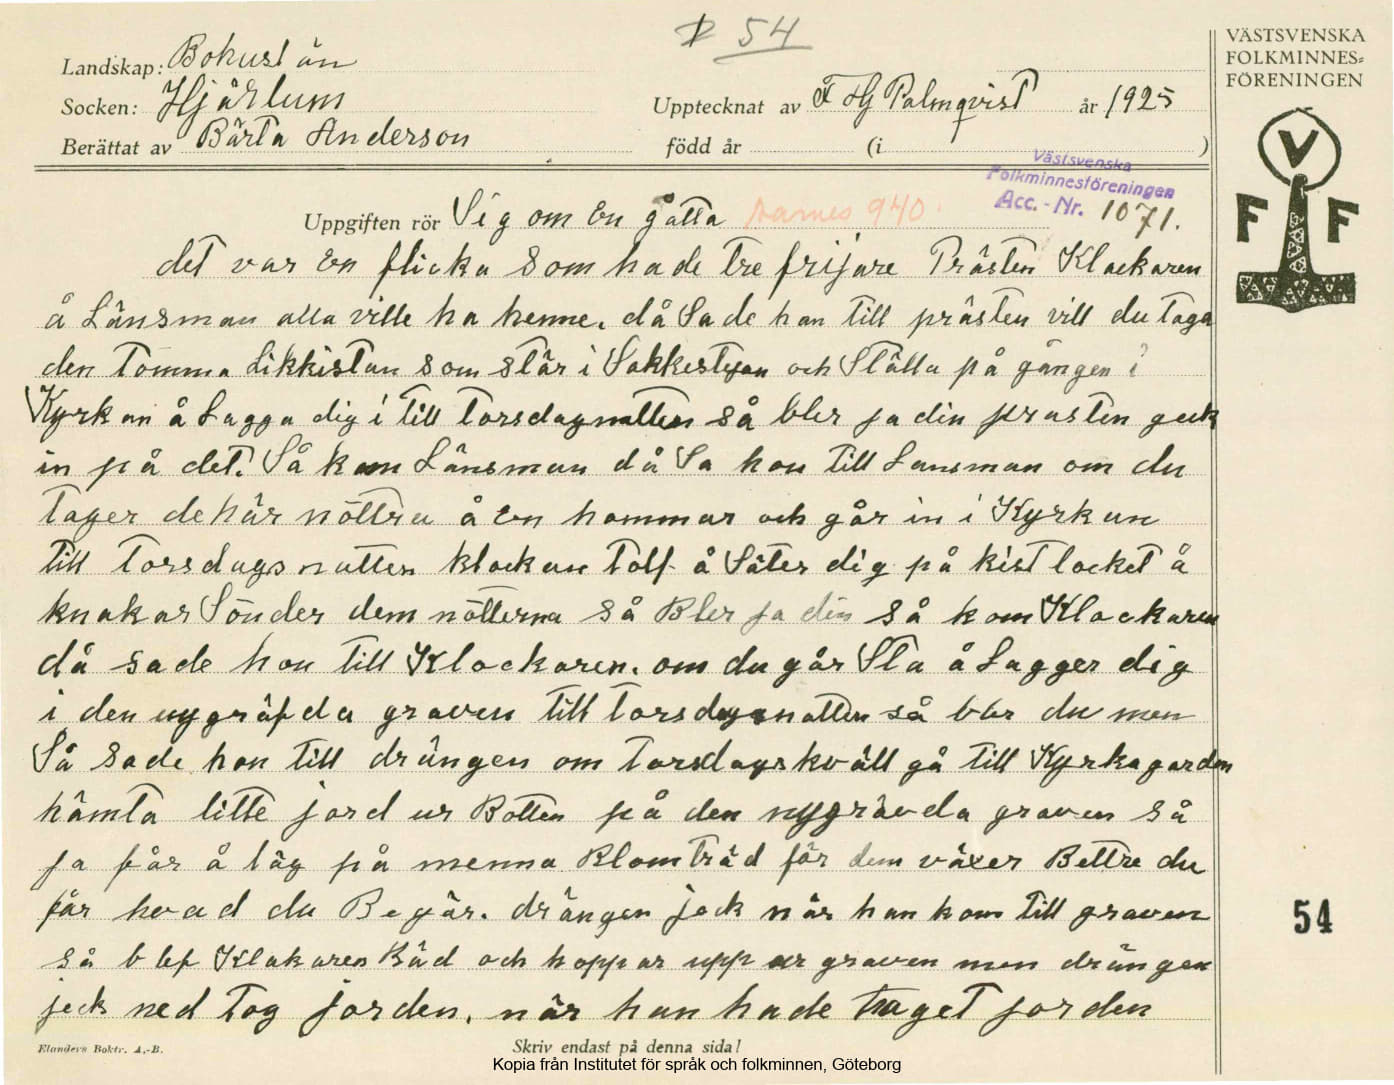 D 54
VÄSTSVENSKA
FOLKMINNES=
FÖRENINGEN
Landskap: Bohuslän
Socken: Hjärtum
Upptecknat av F Hj Palmqvist år 1925
Berättat av Bärta Anderson född år (i )
Västsvenska
Folkminnesföreningen
Acc. - Nr. 1071.
V
F F
Uppgiften rör Sig om En gåtta Aarnes 940.
det var En flicka som hade tre frijare Prästen Klackaren
å Länsman alla ville ha henne. då Sade hon till prästen vill du taga
den tomma Likkistan som står i Sakkestyan och Ställa på gången i
Kyrkan å Lagga dig i till torsdagnatten så bler ja din prasten geck
in på det. Så kom Länsman då Sa hon till Lansman om du
tager dehär nöttra å En hammar och går in i Kyrkan
till torsdags natten klockan tolf å Säter dig på kistlocket å
knakar Sönder dem nötterna så Bler ja din så kom Klockaren
då sade hon till Klockaren. om du går Sta å Lagger dig
i den nygräfda graven till torsdagsnatten så bler du men
Så sade hon till drängen om torsdagskväll gå till Kyrkagarden
hämta litte jord ur Botten på den nygrävda graven så
ja får å läg på menna Blomträd för dem växer Bettre du
får hvad du Begär. drängen jeck när han kom till graven
så blef Klakaren Räd och hoppar upp ur graven men drängen
jeck ned tog jorden. när han hade taget jorden
54
Elanders Boktr. A.-B.
Skriv endast på denna sida!
Kopia från Institutet för språk och folkminnen, Göteborg